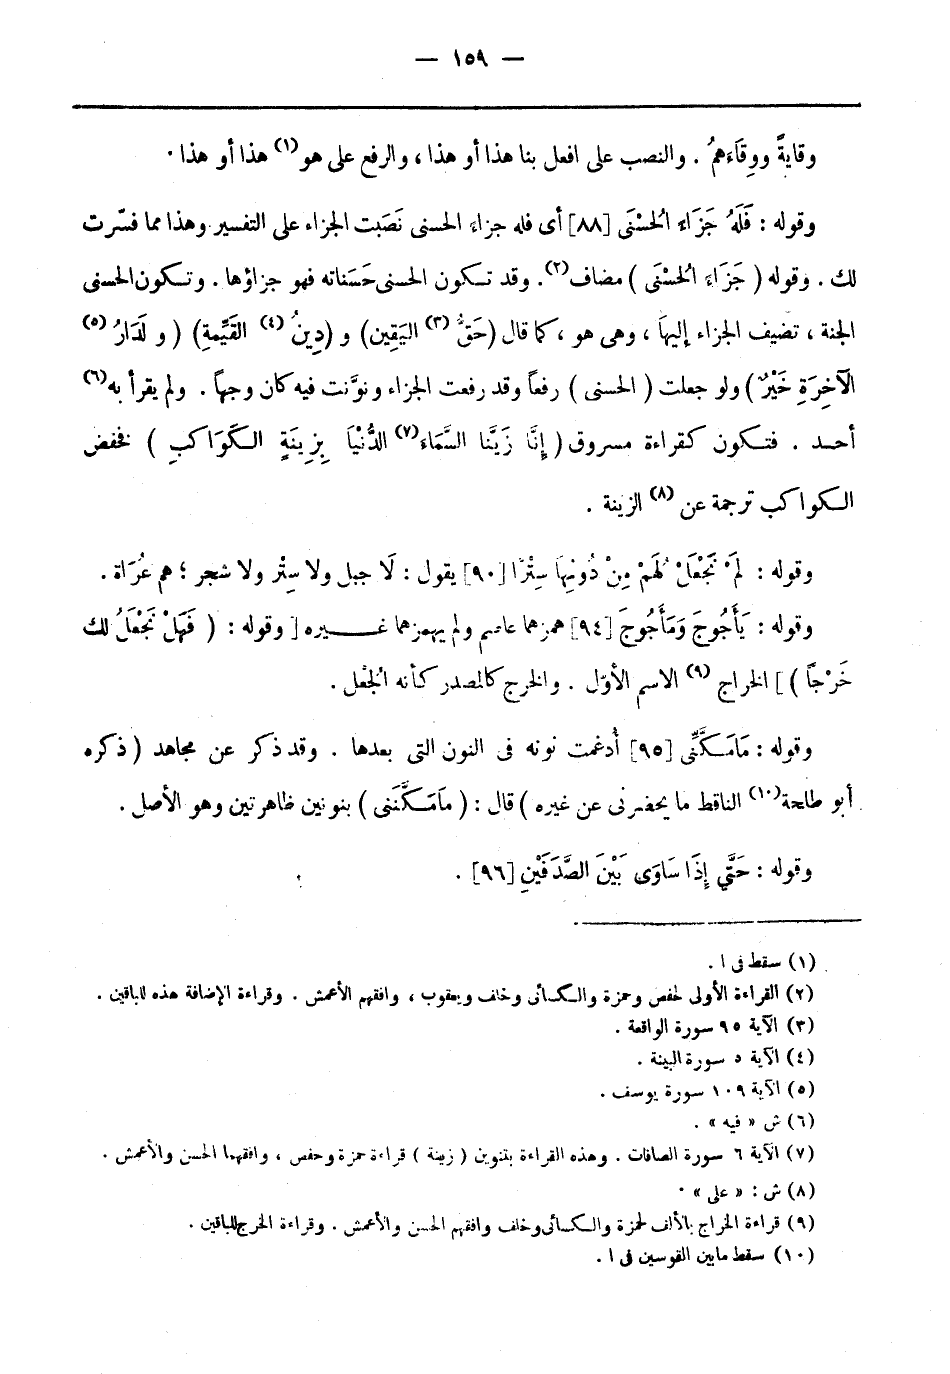 — ١٥٩ —
وقايةً ووِقَاءَهمُ . والنصب على افعل بنا هذا أو هذا ، والرفع على هو(١) هذا أو هذا .
وقوله : فَلَهُ جَزَاءَ الْحُسْنَى [٨٨] أى فله جزاءَ الحسنى نَصَبت الجزاء على التفسير وهذا مما فسّرت
لك . وقوله ( جَزَاءَ الْحُسْنَى ) مضاف(٢). وقد تكون الحسنى حَسَناته فهو جزاؤها . وتكون الحسنى
الجنة ، تضيف الجزاء إليها ، وهى هو ، كما قال (حَقُّ(٣) اليَقِين) و (دِينُ(٤) القَيِّمةِ) ( و لَدَارُ(٥)
الْآخِرَةِ خَيْرٌ ) ولو جعلت ( الحسنى ) رفعاً وقد رفعت الجزاء ونوّنت فيه كان وجهاً . ولم يقرأ به(٦)
أحد . فتكون كقراءة مسروق ( إِنَّا زَيَّنا السَّمَاءَ(٧) الدُّنْيَا بِزِينَةٍ الكَوَاكبِ ) فخفض
الكواكب ترجمة عن (٨) الزينة .
وقوله : لَمْ نَجْعَلْ لَهُمْ مِنْ دُونِهَا سِتْرًا [٩٠] يقول : لَا جبل ولا سِتْر ولا شجر ؛ هم عُرَاة .
وقوله : يَأْجُوجَ وَمَأْجُوجَ [٩٤] همزهما عاصم ولم يهمزهما غيره [ وقوله : ( فَهَلْ نَجْعَلُ لك
خَرْجاً ) ] الخراج (٩) الاسم الأوّل . والخرج كالمصدر كأنه الجُعْل .
وقوله : مَامَكَّنِّى [٩٥] أُدغمت نونه فى النون التى بعدها . وقد ذكر عن مجاهد ( ذكره
أبو طلحة(١٠) الناقط ما يحضرنى عن غيره ) قال : ( مَامَكَّنَنى ) بنونين ظاهرتين وهو الأصل .
وقوله : حَتَّى إِذَا سَاوَى بَيْنَ الصَّدَفَيْنِ [٩٦] .
(١) سقط فى ا .
(٢) القراءة الأولى لحفص وحمزة والكسائى وخلف ويعقوب ، وافقهم الأعمش . وقراءة الإضافة هذه للباقين .
(٣) الآية ٩٥ سورة الواقعة .
(٤) الآية ٥ سورة البينة .
(٥) الآية ١٠٩ سورة يوسف .
(٦) ش « فيه » .
(٧) الآية ٦ سورة الصافات . وهذه القراءة بتنوين ( زينة ) قراءة حمزة وحفص ، وافقهما الحسن والأعمش .
(٨) ش : « على » .
(٩) قراءة الخراج بالألف لحمزة والكسائى وخلف وافقهم الحسن والأعمش . وقراءة الخرج للباقين .
(١٠) سقط ما بين القوسين فى ا .